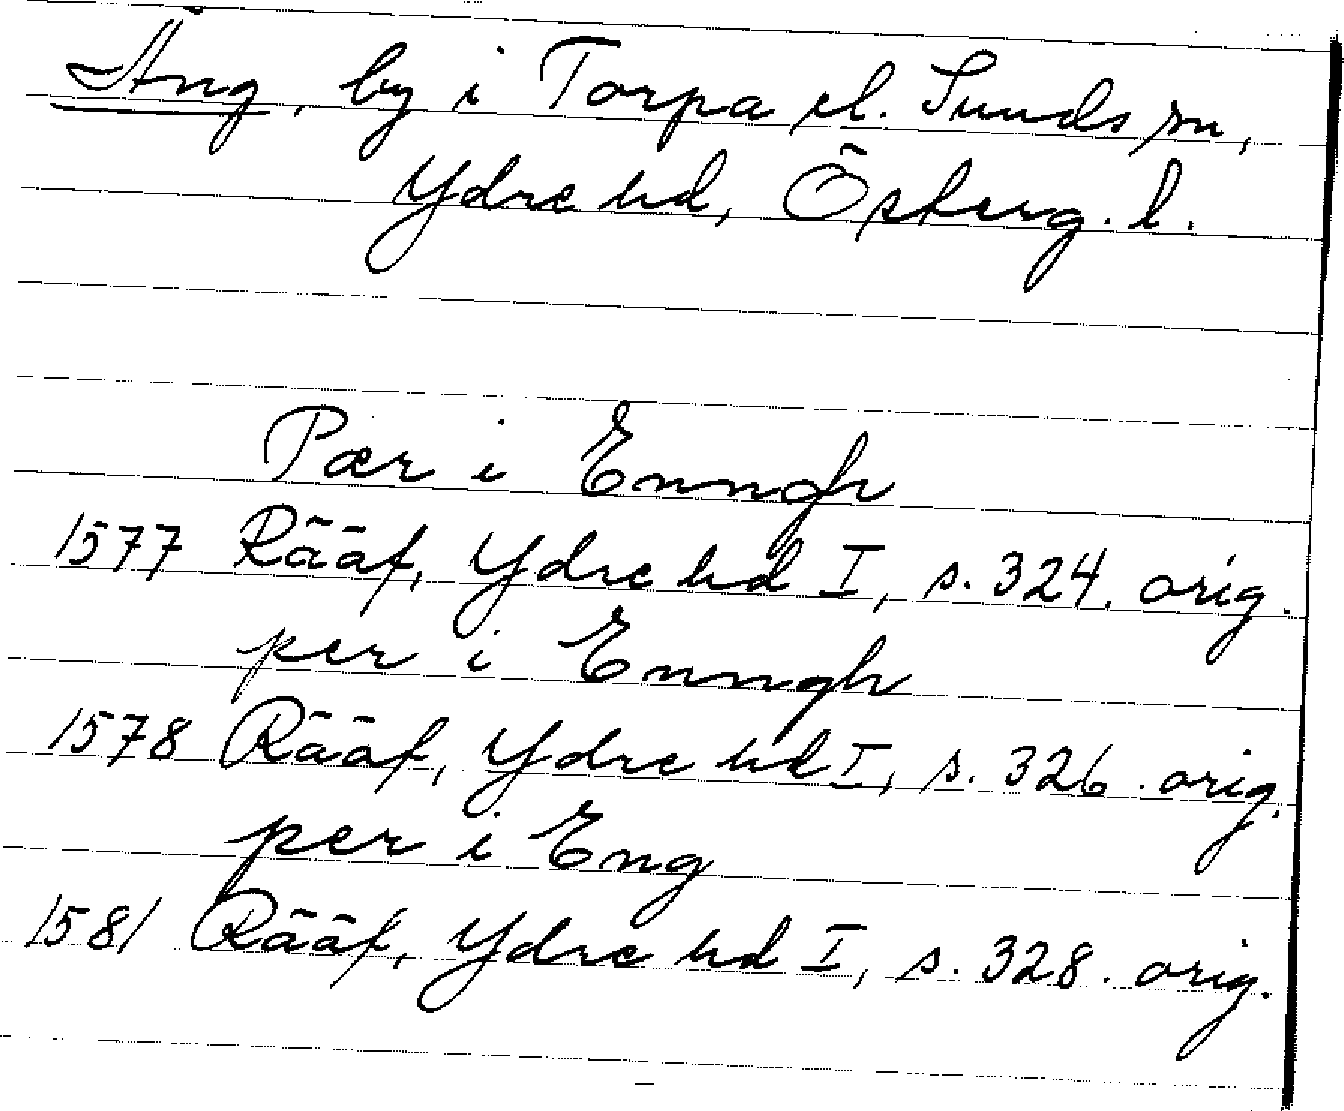 Äng, by i Torpa el. Sunds sn,
Ydre hd, Österg. l.
Pær i Enngh
1577 Rääf, Ydre hd I, s. 324. orig.
per i Enngh
1578 Rääf, Ydre hd I, s. 326. orig.
per i Eng
1581 Rääf, Ydre hd I, s. 328. orig.